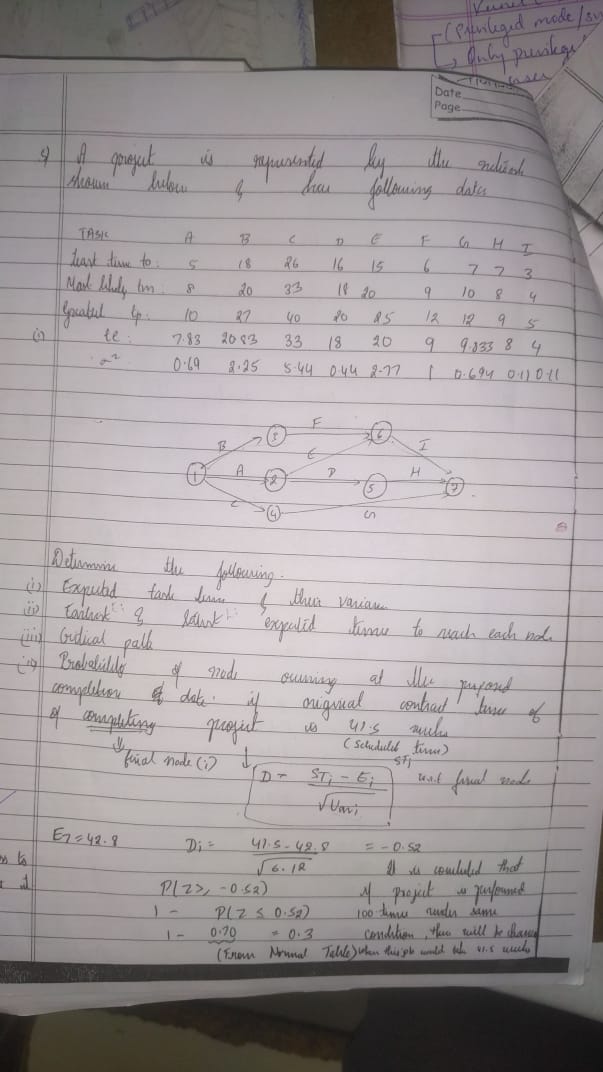 Kernel
(Privileged mode/su
Only privileg
user
Date
Page
A project is represented by the network
shown below & has following data
TASK A B C D E F G H I
Least time to: 5 18 26 16 15 6 7 7 3
Most likely tm: 8 20 33 18 20 9 10 8 4
Greatest tp: 10 27 40 20 25 12 12 9 5
(i) te: 7.83 20.83 33 18 20 9 9.833 8 4
σ² 0.69 2.25 5.44 0.44 2.77 1 0.694 0.11 0.11
F
B 3 6 I
E
1 A 2 D 5 H 7
C 4 G
Determine the following.
(i) Expected task time & their varian
(ii) Earliest & latest expected times to reach each node
(iii) Critical path
(iv) Probability of node occurring at the proposed
completion of date if original contract time of
of completing project is 41.5 weeks
(scheduled time)
final node (i) STi
D = STi - Ei w.r.t final node
√Vari
E7 = 42.8 Di = 41.5 - 42.8 = -0.52
√6.12
It is concluded that
P(Z ≥, -0.52) if project is performed
1 - P(Z ≤ 0.52) 100 times under same
1 - 0.70 = 0.3 condition, there will be chance
(From Normal Table) when this job would take 41.5 weeks